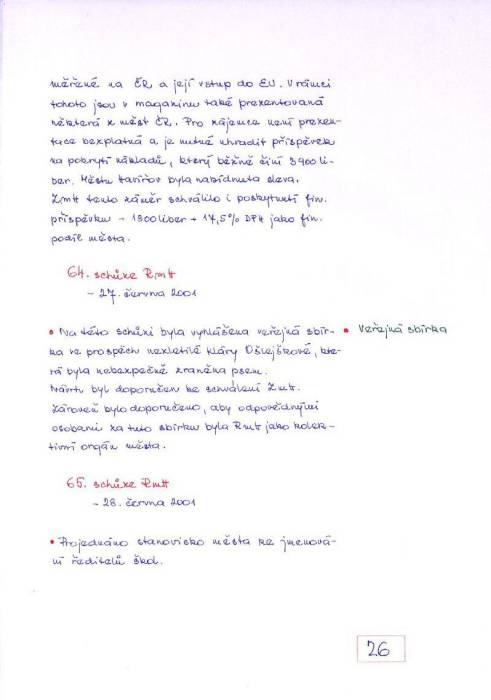 měřené na ČR a její vstup do EU. V rámci
tohoto jsou v magazínu také prezentovaná
některá z měst ČR. Pro zájemce není prezen-
tace bezplatná a je nutné uhradit příspěvek
na pokrytí nákladů, který běžně činí 3900 li-
ber. Městu Havířov byla nabídnuta sleva.
ZmH tento záměr schválilo i poskytnutí fin.
příspěvku - 1300 liber + 17,5% DPH jako fin.
podíl města.
64. schůze RmH
- 27. června 2001
• Na této schůzi byla vyhlášena veřejná sbír-
ka ve prospěch nezletilé Kláry Ošlejškové, kte-
rá byla nebezpečně zraněna psem.
Návrh byl doporučen ke schválení ZmH.
Zároveň bylo doporučeno, aby odpovědnými
osobami za tuto sbírku byla RmH jako kolek-
tivní orgán města.
• Veřejná sbírka
65. schůze RmH
- 28. června 2001
• Projednáno stanovisko města ke jmenová-
ní ředitelů škol.
26